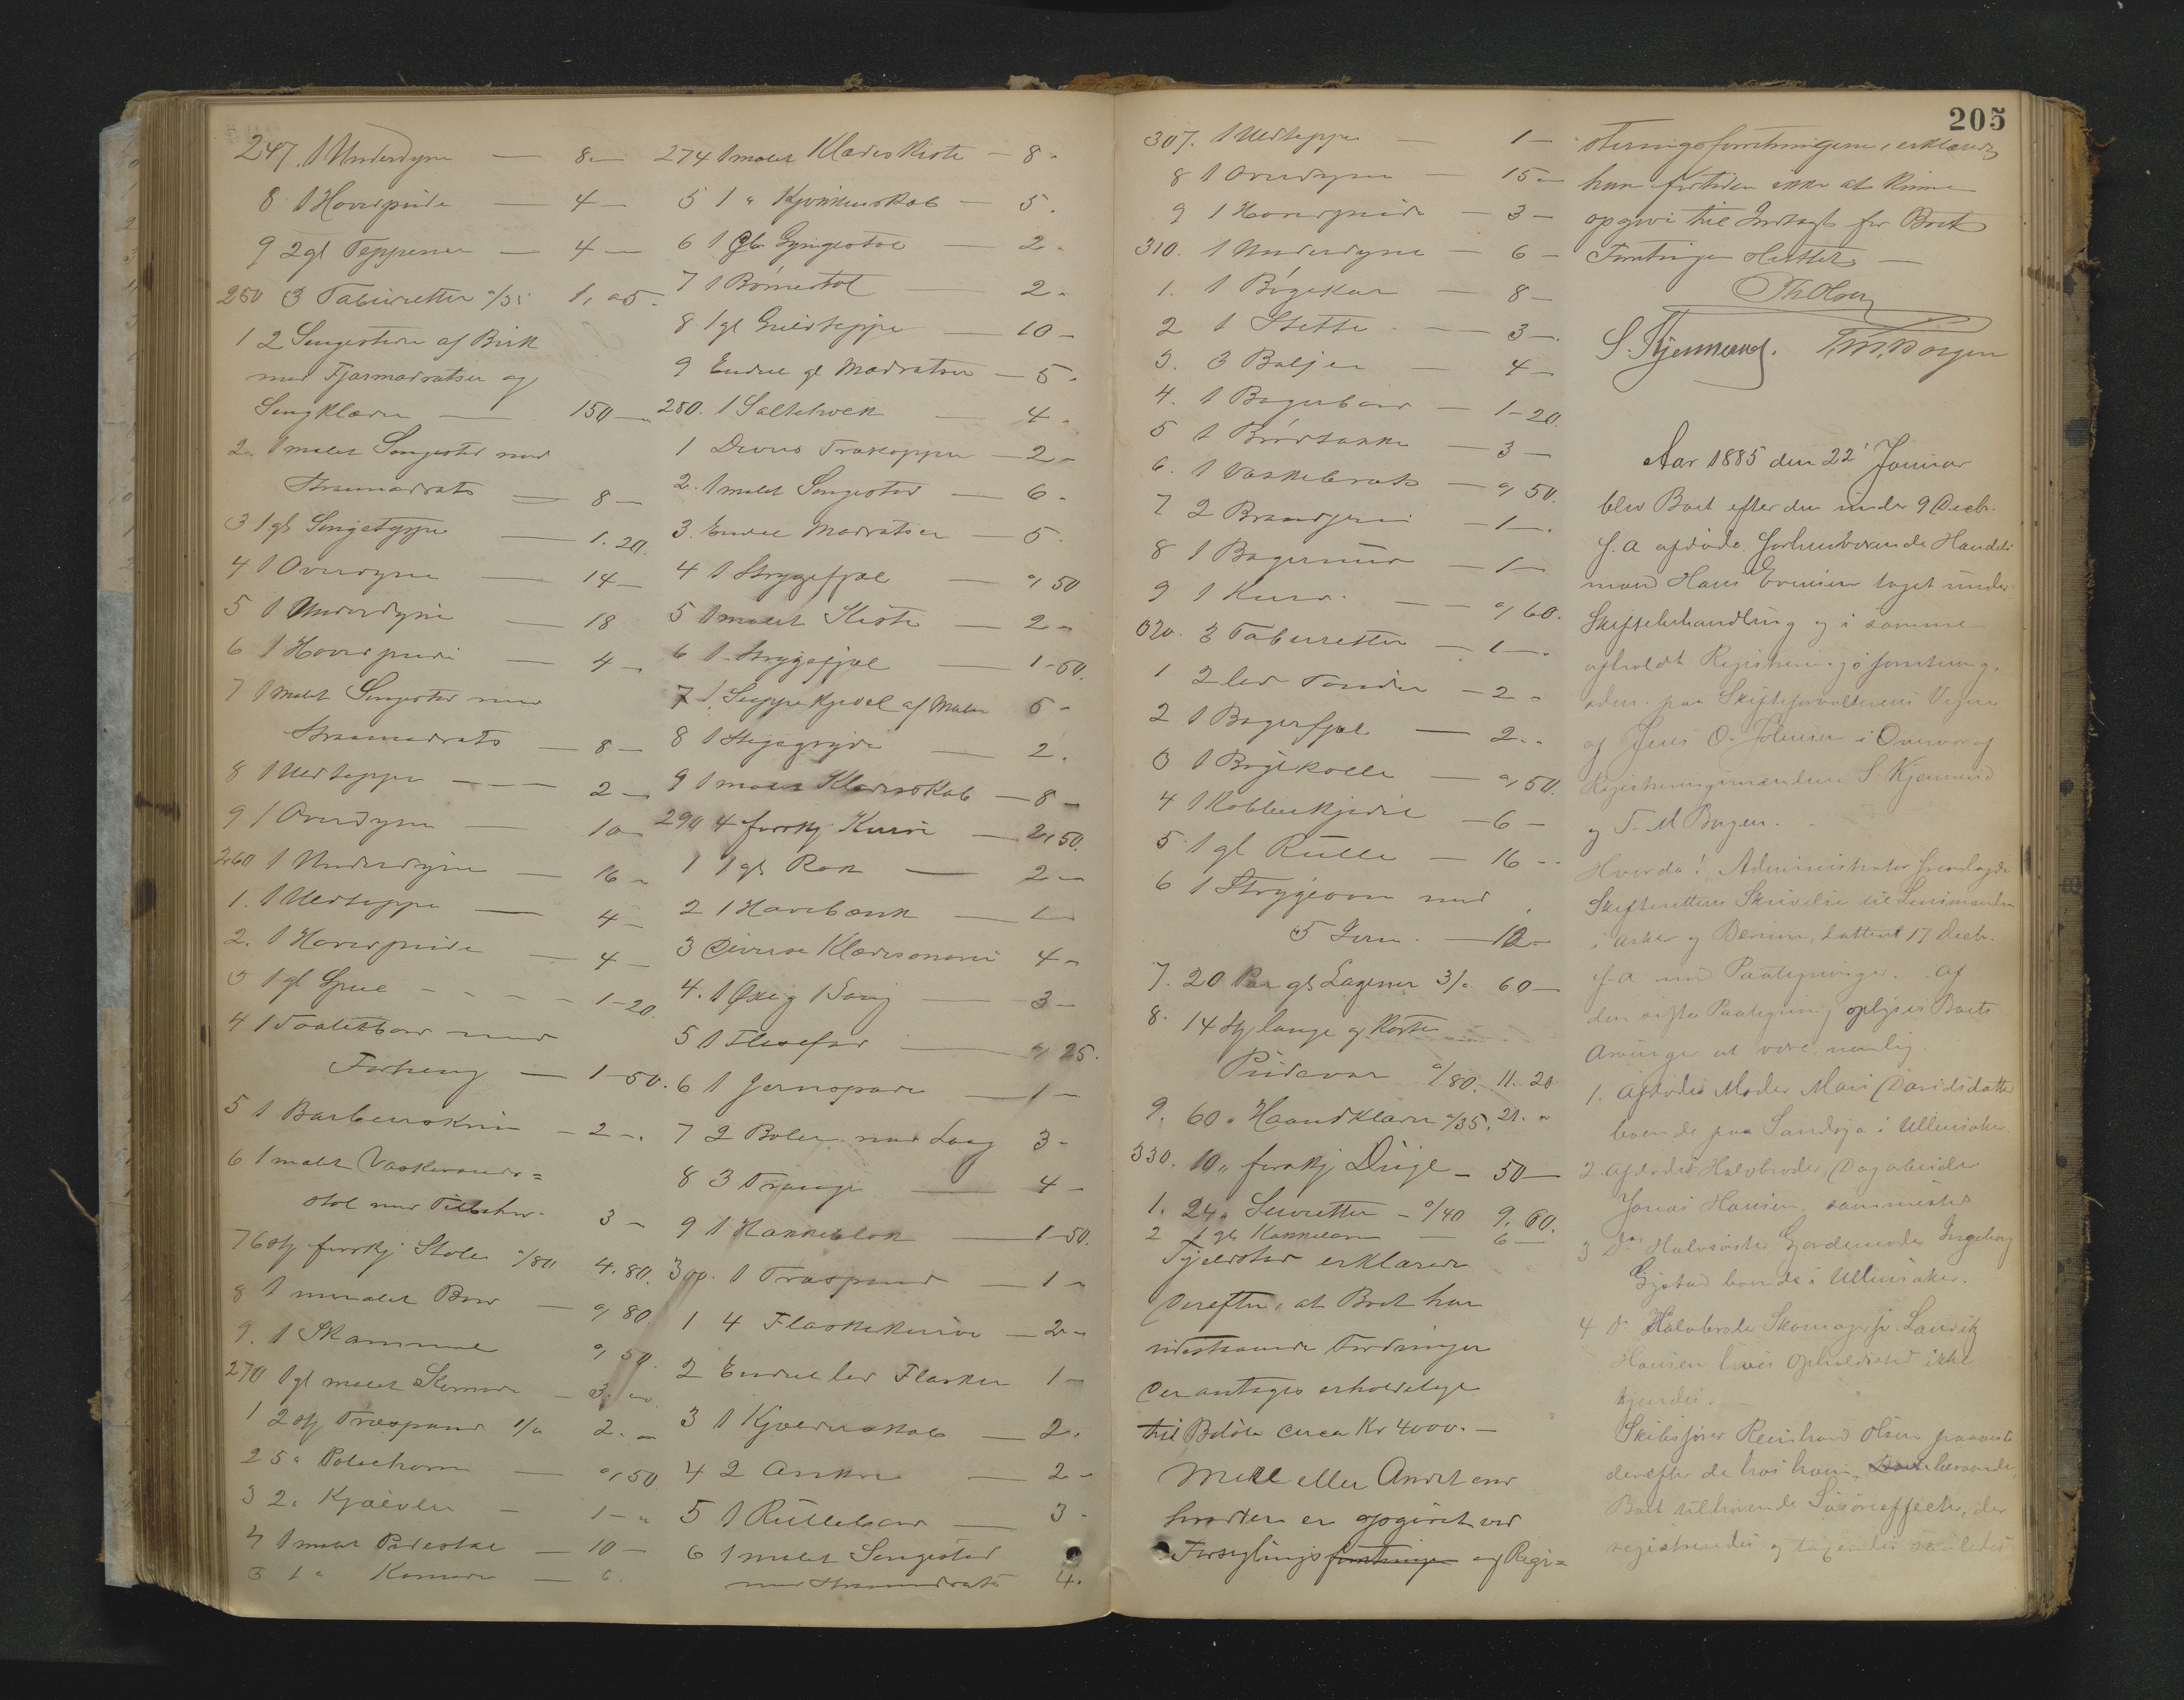 247. 1 Underdyne — 8 —
8 1 Hovedpude — 4 —
9 2 gl Tepperier — 4 —
250 3 Taburetter a/35 1, 05.
1 2 Sengesteder af Birk
med Fjærmadratser og
Sengklæder — 150 —
2. 1 malet Sengested med
Straamadrats — 8 —
3 1 gl Sengeteppe — 1. 20.
4 1 Overdyne — 14 —
5 1 Underdyne — 18
6 1 Hovedpude — 4 —
7 1 malet Sengested med
Straamadrats — 8 —
8 1 Uldteppe — 2 —
9 1 Overdyne — 10 —
260 1 Underdyne — 16 —
1. 1 Uldteppe — 4 —
2. 1 Hovedpude — 4 —
3 1 gl Speil — 1 - 20.
4 1 Toaletbord med
Forheng — 1 - 50.
5 1 Barberskrin — 2 —
6 1 malet Vaskevands=
stol med Tilbehør. 3 —
7 6 stk forskj Stole a/80 4. 80.
8 1 umalet Bord — 0, 80
9. 1 Skammel 0, 50.
270 1 gl malet Komode — 3. —
1 2 stk Træspand 1/- 2. —
2 5 " — 0, 50
3 2 " — 1 —
4 1 malet — 10 —
5 1 " Komode — 6.
274 1 malet Klædeskiste — 8 -
5 1 " Kjøkkenskab — 5.
6 1 gl. Gyngestol — 2 -
7 1 Børnestol — 2 -
8 1 gl Gulvteppe — 10 -
9 Endel gl Madratser — 5 -
280. 1 — 4 -
1 Divers Trækopper — 2 -
2. 1 malet Sengested — 6 -
3. Endel Madratser — 5.
4 1 Strygefjæl — 0, 50
5 1 malet Kiste — 2 -
6 1 Strygefjæl — 1 - 50.
7 1 Suppekjedel af Malm 5 -
8 1 Stegegryde — 2.
9 1 malet Klædesskab — 8 -
290 4 forskj Kurve — 2, 50.
1 1 gl Rok — 2 —
2 1 Havebænk — 1 —
3 Diverse Klædesnorer 4 -
4. 1 Øxe og 1 Saug — 3 -
5 1 Flesefad — 0, 25.
6 1 Jernspade — 1 -
7 2 Boler med Laag 3 -
8 3 Trauge — 4 -
9 1 Hakkeblok — 1 - 50.
300. 1 Træspand — 1 -
1 4 Flaskekurve — 2 -
2 Endel led Flasker 1 -
3 1 Kjælderskab — 2.
4 2 Ankre — 2 -
5 1 Rullebord — 3 -
6 1 malet Sengested
med Straamadrats 4.
307. 1 Uldteppe — 1 —
8 1 Overdyne — 15 —
9 1 Hovedpude — 3 —
310. 1 Underdyne — 6 —
1. 1 Bøgekar — 8 —
2 1 Stette — 3 —
3. 3 Baljer — 4 —
4. 1 Bagerbord — 1 - 20.
5 1 Brødtakke — 3 —
6. 1 Vaskebræt — 0, 50.
7 2 Brandjern — 1 —
8 1 — 1 —
9 1 Kurv. — 0, 60.
320. 3 Taburetter — 1 —
1 2 led Tønder — 2 -
2 1 Bagerfjæl — 2. -
3 1 — 0, 50.
4 1 Kobberkjedel — 6 —
5 1 gl Rulle — 16 --
6 1 Strygeovn med
5 Jern. — 12 -
7. 20 Par gl Lagener 3/- 60 —
8. 14 stk lange og korte
Pudevar 0/80. 11. 20
9. 60 " Haandklæder 0/35. 21. -
330. 10 " forskj Duge — 50 —
1. 24 " Servietter — 0/40 9. 60.
2 1 gl Kakkelovn — 6 —
Tjeldstad erklærede
derefter, at Boet har
udestaaende Fordringer
der antages erholdelige
til Beløb circa Kr 4000. —
Mere eller Andet end
hvad der er opgivet ved
Forseglings forretningen og Regi=
205
streringsforretningerne, erklærede
han fortiden ikke at kunne
opgive til Indtægt for Boet
Forretningen sluttet —
Th Olsen
S. Kjennerud. T. M. Borgen
Aar 1885 den 22' Januar
blev Boet efter den under 9 Decbr.
f. A afdøde forhenværende Handels
mand Hans Evensen taget under
Skiftebehandling og i samme
afholdt Registreringsforretning,
adm. paa Skifteforvalterens Vegne
af Jens O. Johnsen i Overvær af
Registreringsmændene S. Kjennerud
og T. M Borgen.
Hvorda! Administrator fremlagde
Skifterettens Skrivelse til Lensmanden
i Asker og Bærum, dateret 17 Decb.
f. A med Paategninger. Af
den sidste Paategning oplyses Boets
Arvinger at være, nemlig
1. Afdødes Moder Mari Davidsdatter
boende paa Sandsja i Ullensaker
2. Afdødes Halvbroder, Dagarbeider
Jonas Hansen, sammesteds
3 Do Halvsøster Gaardmoder Ingeborg
Gjestad boende i Ullensaker.
4 Do Halvbroder Skomagersv. Laurits
Hansen hvis Opholdssted ikke
kjendes.
Skibsfører Reinhard Olsen paaviste
derefter de hos ham beroende,
Boet tilhørende Løsøreeffecter, der
registreredes og taxeredes saaledes